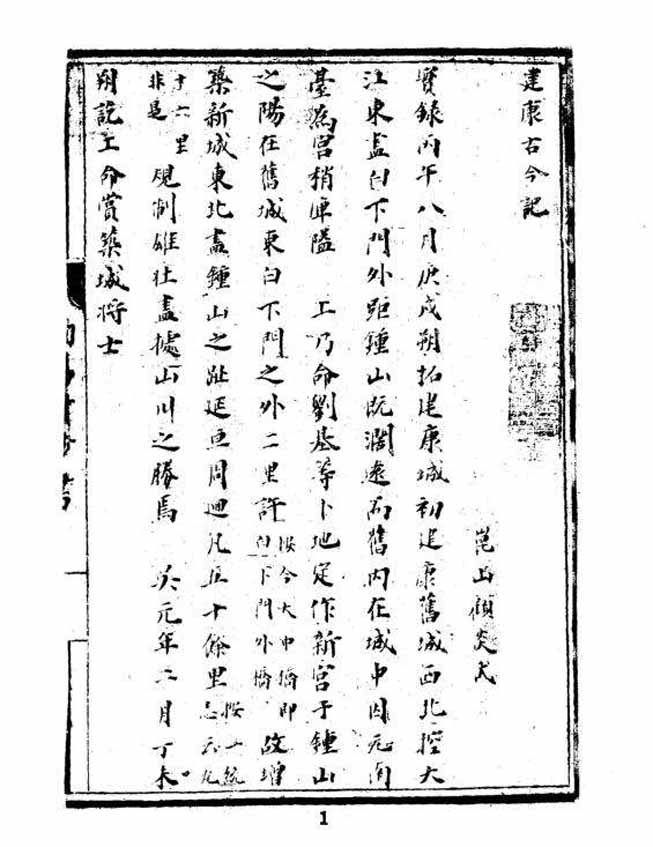 建康古今記
崑山顧炎武
實錄丙午八月庚戌朔拓建康城初建康舊城西北控大
江東盡白下門外距鍾山既濶遠而舊內在城中因元南
臺為宮稍庳隘 上乃命劉基等卜地定作新宮于鍾山
之陽在舊城東白下門之外二里許按今大中橋即白下門外橋故增
築新城東北盡鍾山之趾延亘周迴凡五十餘里按一統志云九
十六里非是規制雄壯盡據山川之勝焉 吳元年二月丁未
朔設上命賞築城將士
1